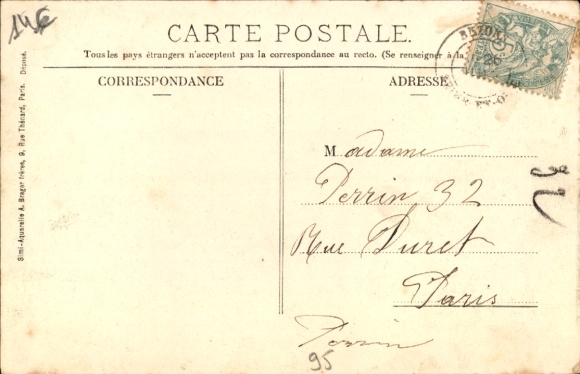 14€
CARTE POSTALE.
Tous les pays étrangers n'acceptent pas la correspondance au recto. (Se renseigner à la
CORRESPONDANCE
ADRESSE
Simi-Aquarelle A. Breger frères, 9, Rue Thénard, Paris. Déposé.
Madame
Perrin 32
Rue Duret
Paris
Perrin
95
32